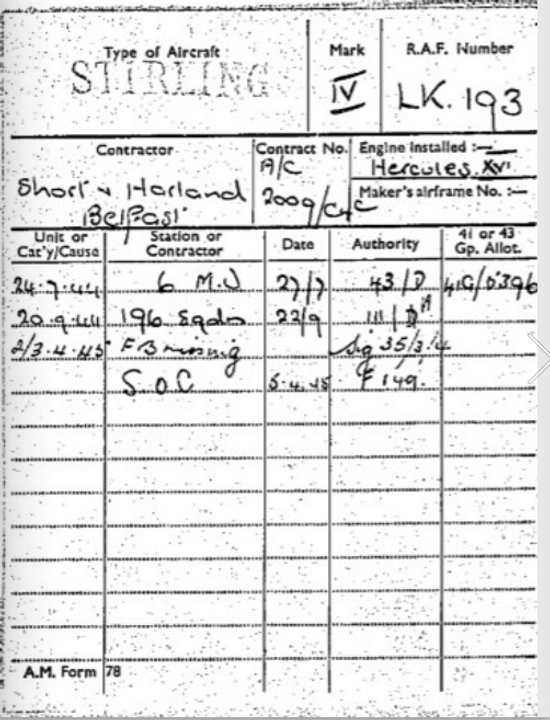 Type of Aircraft Mark R.A.F. Number
STIRLING IV LK.193
Contractor Contract No. Engine Installed :—
A/C Hercules XVI
Short & Harland 2009/C4C Maker's airframe No. :—
Belfast
Unit or Cat'y/Cause Station or Contractor Date Authority 41 or 43 Gp. Allot.
24.7.44 6 M.U 27/7 43/D 41G/5396
20.9.44 196 Sqdn 22/9 111/DA
2/3.4.45 FB missing Sig 35/3/4
S.O.C 5.4.45 F 149.
A.M. Form 78